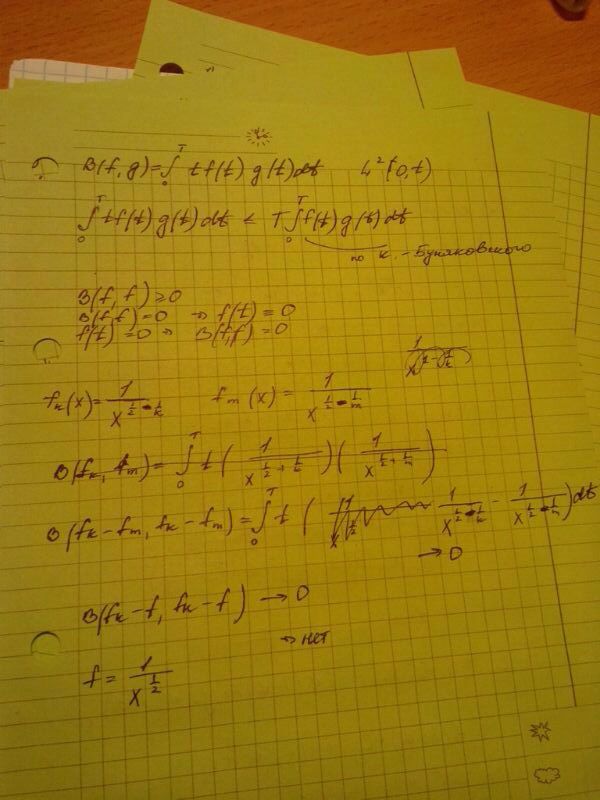 B(f,g)=∫₀ᵀ t f(t) g(t)dt   L²(0,t)
∫₀ᵀ t f(t) g(t)dt ≤ T∫₀ᵀ f(t) g(t)dt
по К.-Буняковского
B(f,f) ≥ 0
B(f,f)=0 → f(t)=0
f(t)=0 → B(f,f)=0
fₖ(x)= 1/x^(1/2-1/k)   fₘ(x)= 1/x^(1/2-1/m)
B(fₖ,fₘ)= ∫₀ᵀ t ( 1/x^(1/2+1/k) )( 1/x^(1/2+1/m) )
B(fₖ-fₘ, fₖ-fₘ)= ∫₀ᵀ t ( 1/x^(1/2-1/k) - 1/x^(1/2-1/m) )dt
→ 0
B(fₖ-f, fₖ-f) → 0
→ нет
f = 1/x^(1/2)